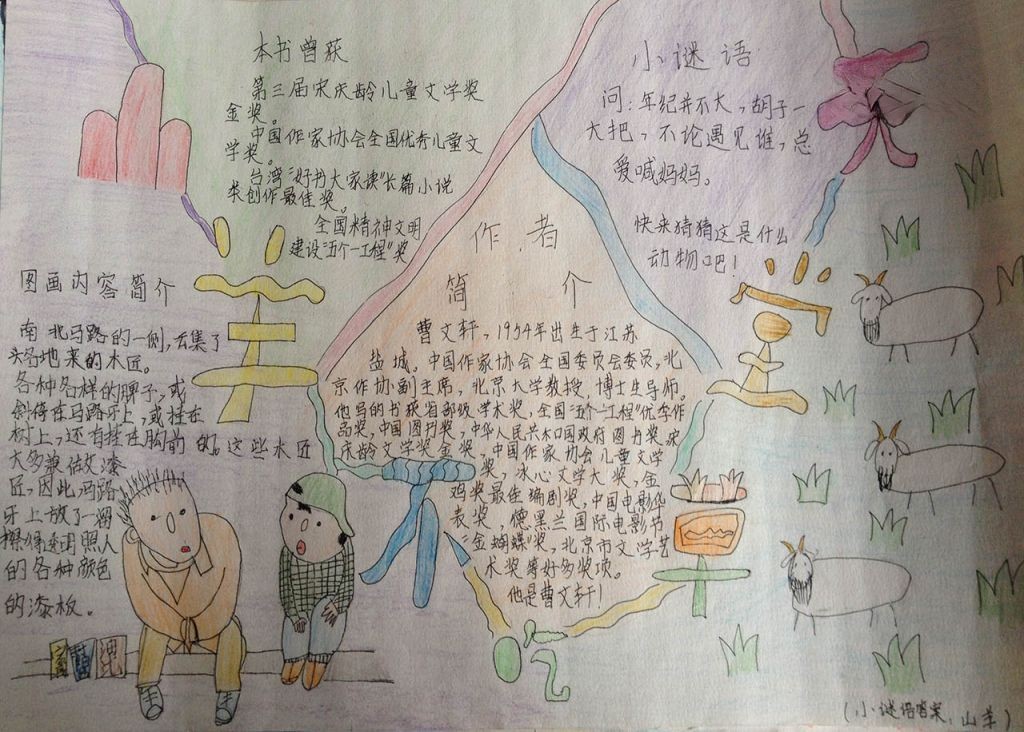 本书曾获
第三届宋庆龄儿童文学奖
金奖。
中国作家协会全国优秀儿童文
学奖。
台湾“好书大家读”长篇小说
类创作最佳奖。
全国精神文明
建设“五个一工程”奖
小谜语
问：年纪并不大，胡子一
大把，不论遇见谁，总
爱喊妈妈。
快来猜猜这是什么
动物吧！
图画内容简介
南北马路的一侧，云集了
各地来的木匠。
各种各样的牌子，或
斜倚在马路牙上，或挂在
树上，还有挂在胸前的。这些木匠
大多兼做漆
匠，因此马路
牙上放了一溜
擦得透明照人
的各种颜色
的漆板。
作者
简介
曹文轩，1954年出生于江苏
盐城。中国作家协会全国委员会委员，北
京作协副主席，北京大学教授，博士生导师。
他写的书获省部级学术奖，全国“五个一工程”优秀作
品奖，中国图书奖，中华人民共和国政府图书奖，宋
庆龄文学奖金奖，中国作家协会儿童文学
奖，冰心文学大奖，金
鸡奖最佳编剧奖，中国电影华
表奖，德黑兰国际电影节
“金蝴蝶”奖，北京市文学艺
术奖等好多奖项。
他是曹文轩！
山
羊
不
吃
天
堂
草
(小谜语答案，山羊)